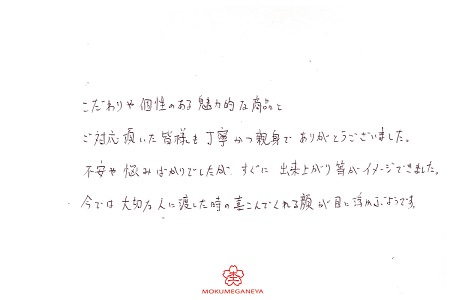 こだわりや個性のある魅力的な商品と
ご対応頂いた皆様も丁寧かつ親身でありがとうございました。
不安や悩みばかりでしたが、すぐに出来上がり等がイメージできました。
今では大切な人に渡した時の喜こんでくれる顔が目に浮かぶようです。
MOKUMEGANEYA